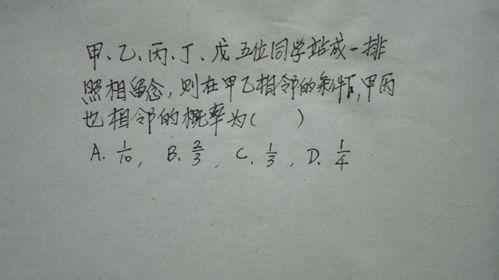 甲、乙、丙、丁、戊五位同学站成一排
照相留念，则在甲乙相邻的条件下，甲丙
也相邻的概率为（ ）
A. 1/10， B. 2/3， C. 1/3， D. 1/4